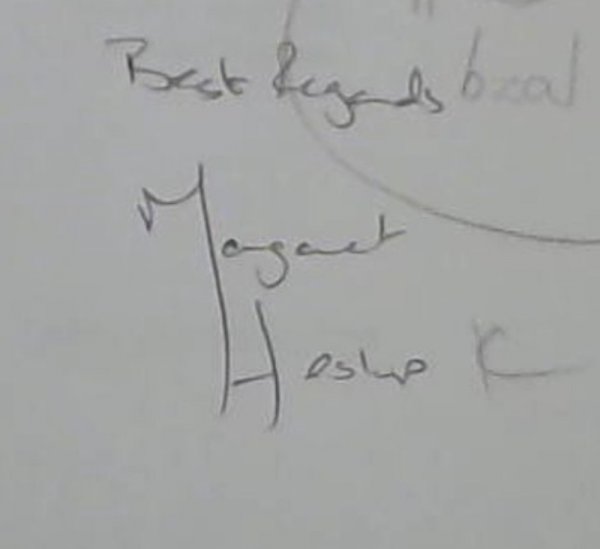 Best Regards
Margaret
Heslop